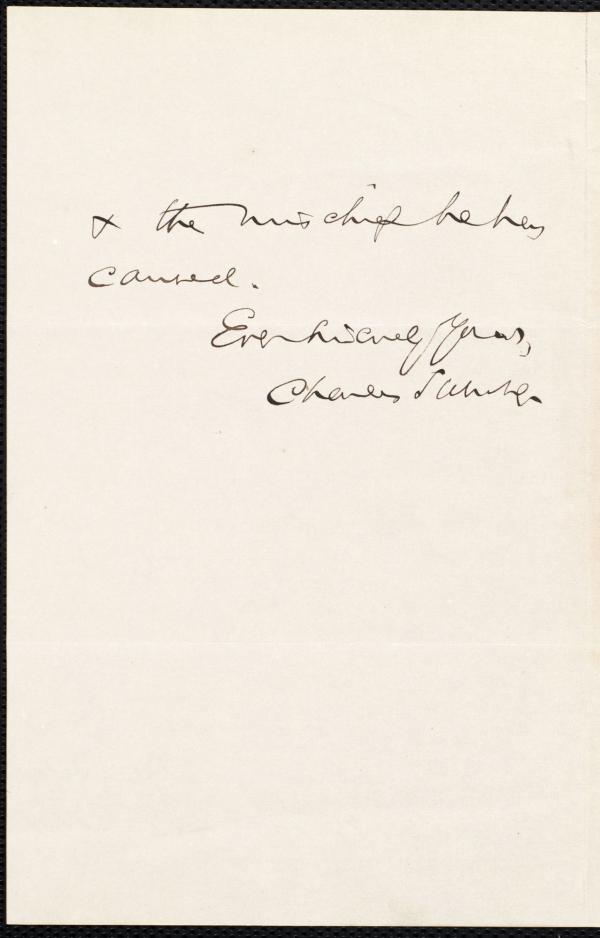 & the mischief he has
caused.
Ever sincerely Yours,
Charles Sumner